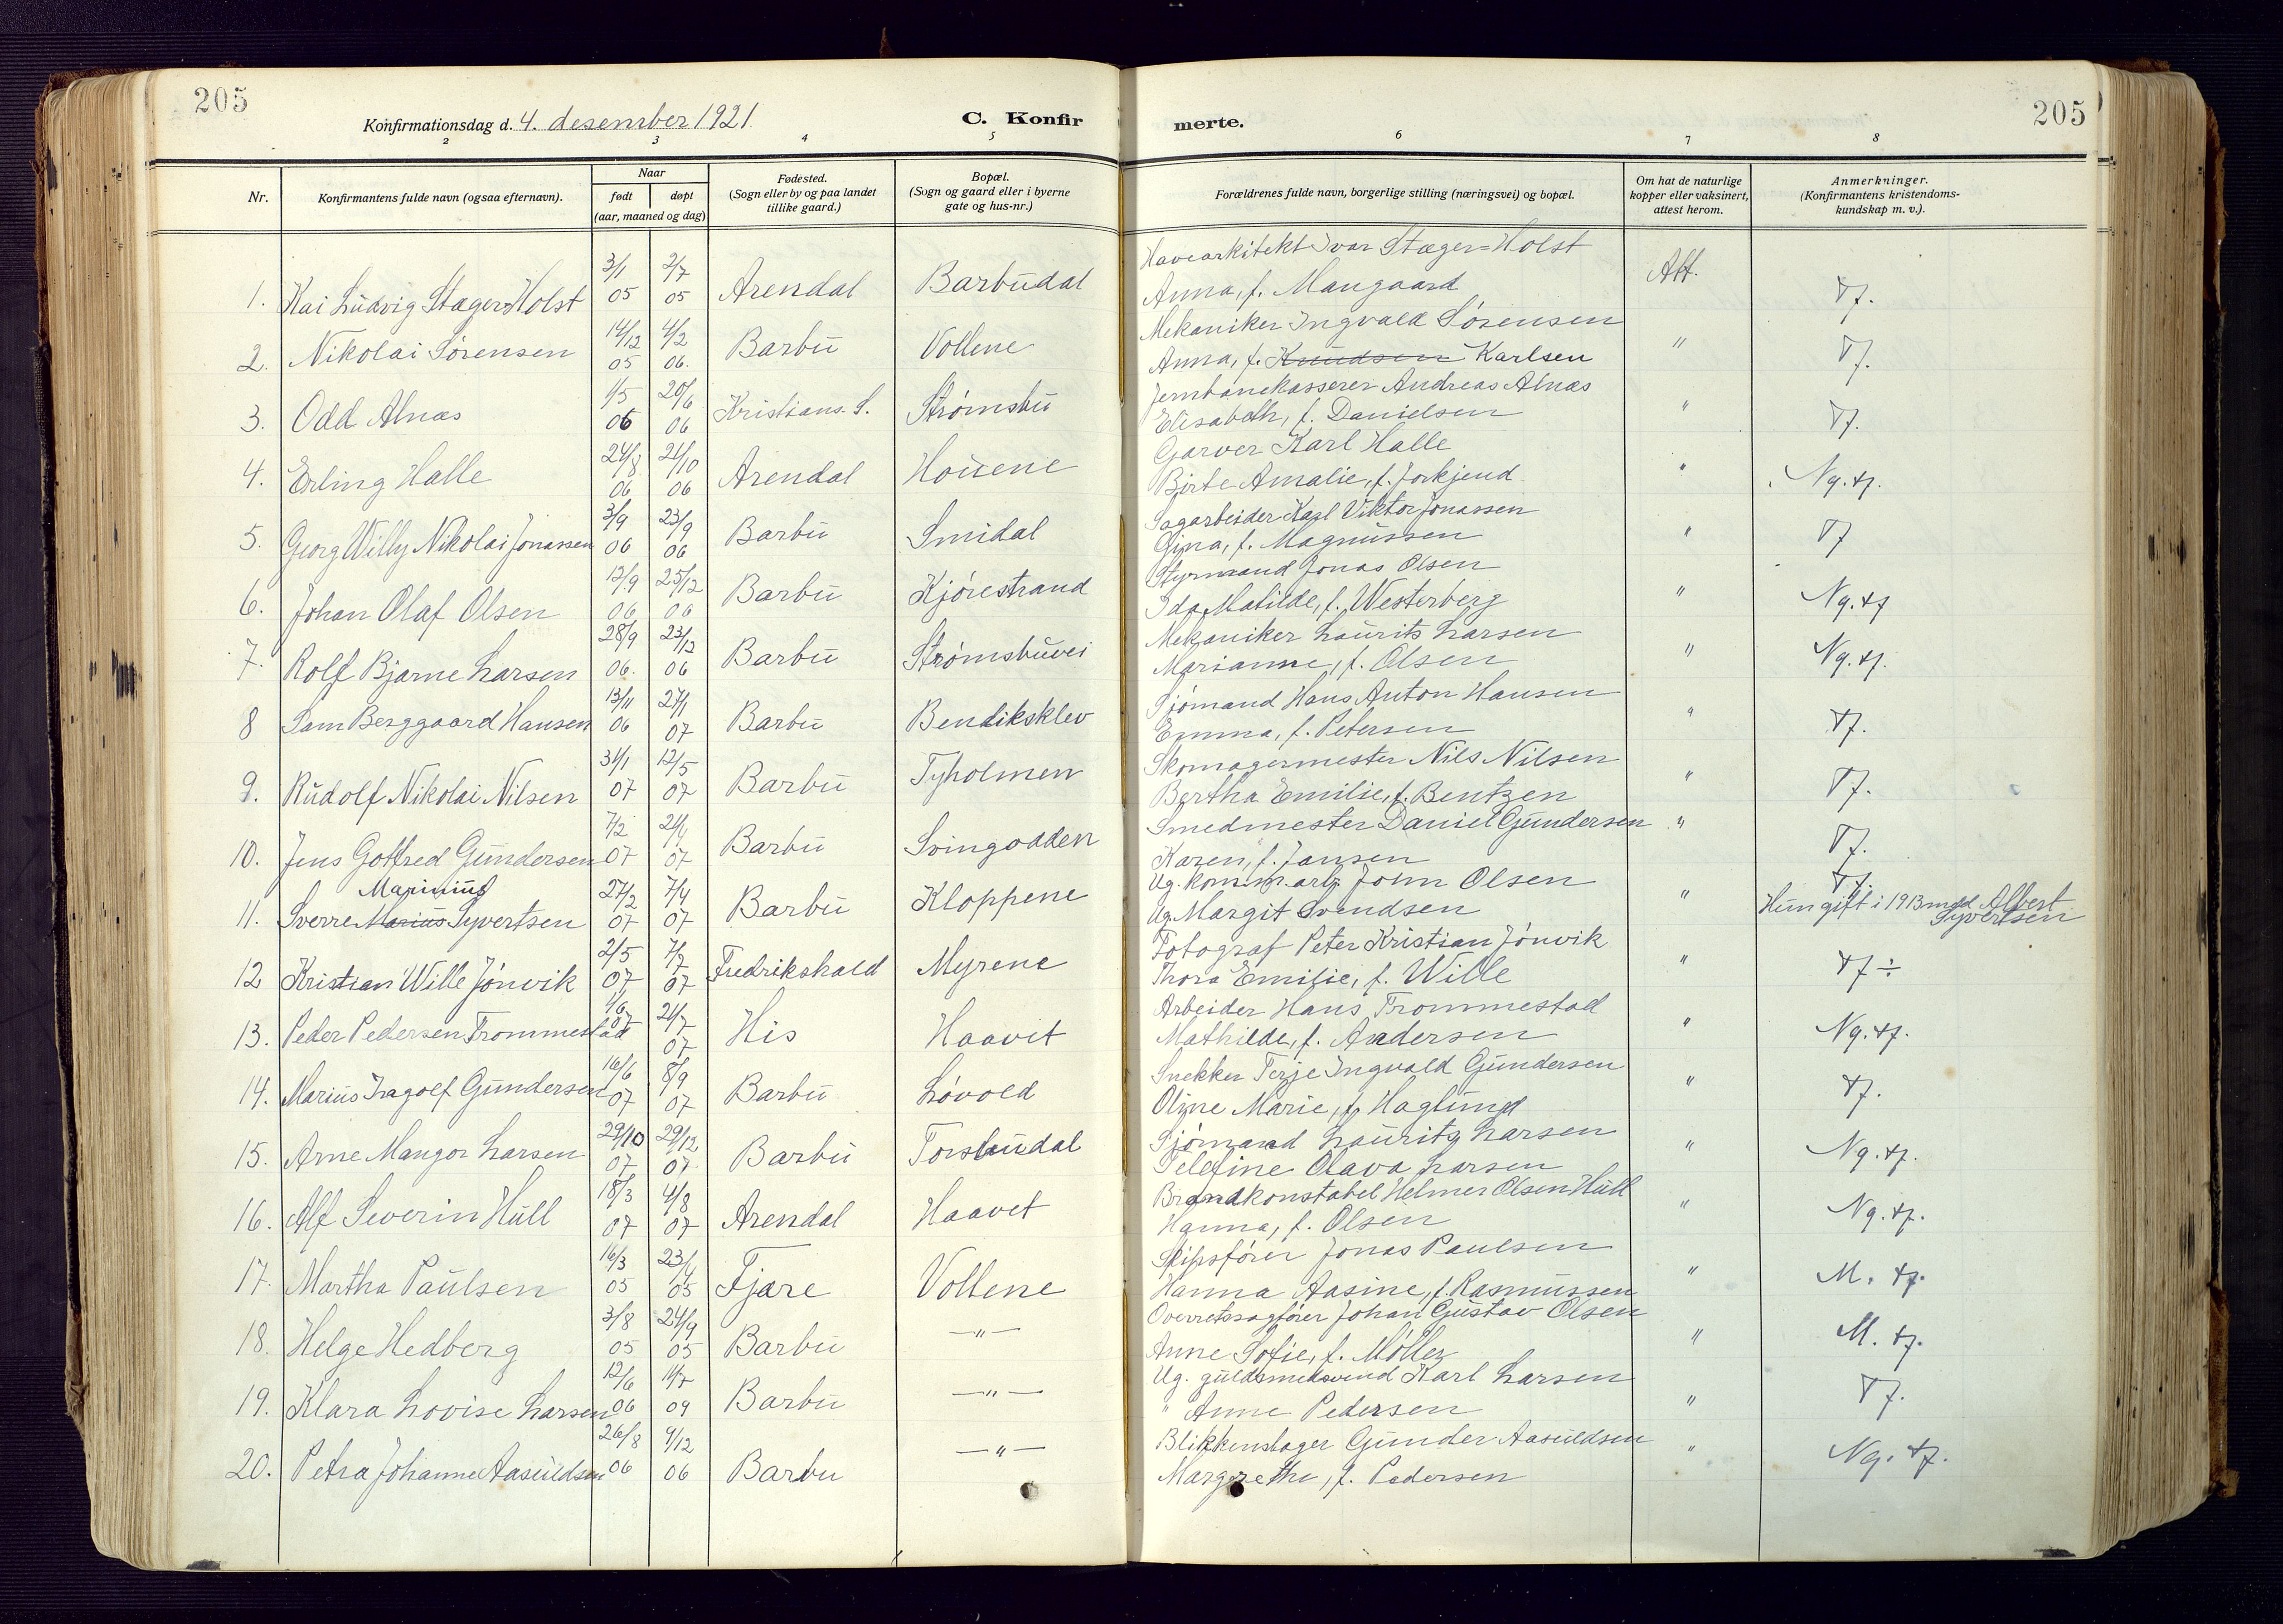 205
Konfirmationsdag d. 4. desember 1921.
C. Konfir
merte.
205
2 3 4 5 6 7 8
Nr.
Konfirmantens fulde navn (ogsaa efternavn).
Naar
født døpt
(aar, maaned og dag)
Fødested.
(Sogn eller by og paa landet
tillike gaard.)
Bopæl.
(Sogn og gaard eller i byerne
gate og hus-nr.)
Forældrenes fulde navn, borgerlige stilling (næringsvei) og bopæl.
Om hat de naturlige
kopper eller vaksinert,
attest herom.
Anmerkninger.
(Konfirmantens kristendoms-
kundskap m. v.).
1. Kai Ludvig Stæger=Holst 3/1 05 2/7 05 Arendal Barbudal
Havearkitekt Ivar Stæger=Holst Att.
Anna, f. Mangaard Tf.
2. Nikolai Sørensen 14/12 05 4/2 06. Barbu Vollene
Mekaniker Ingvald Sørensen
Anna, f. Knudsen Karlsen " Tf.
3. Odd Alnæs 1/5 06 20/6 06 Kristians. S. Strømsbu
Jernbanekasserer Andreas Alnæs
Elisabeth, f. Danielsen " Tf.
4. Erling Halle 24/8 06 21/10 06 Arendal Houene
Garver Karl Halle
Birte Amalie, f. Jorkjend " Ng. tf.
5. Georg Willy Nikolai Jonassen 3/9 06 23/9 06 Barbu Smidal
Sagarbeider Karl Viktor Jonassen
Gina, f. Magnussen " Tf
6. Johan Olaf Olsen 12/9 06 25/12 06 Barbu Kjørestrand
Styrmand Jonas Olsen
Ida Matilde, f. Westerberg " Ng. tf
7. Rolf Bjarne Larsen 28/9 06. 23/12 06 Barbu Strømsbuvei
Mekaniker Laurits Larsen
Marianne, f. Olsen " Ng. tf.
8 Sam Berggaard Hansen 13/11 06 27/1 07 Barbu Bendiksklev
Sjömand Hans Anton Hansen
Emma, f. Petersen " tf.
9. Rudolf Nikolai Nilsen 31/1 07 12/5 07 Barbu Tyholmen
Skomagermester Nils Nilsen
Bertha Emilie, f. Bentzen " Tf.
10. Jens Gotfred Gundersen 7/2 07 21/4 07 Barbu Svingodden
Smedmester Daniel Gundersen "
Karen, f. Jansen Tf.
Marinius
11. Sverre Marius Syvertsen 27/2 07 7/4 07 Barbu Kloppene
Ug. komm. arb. John Olsen Tf.
Ug. Margit Svendsen " Hun gift i 1913 med Albert
Syvertsen
12 Kristian Wille Jónvik 2/5 07 7/7 07 Fredrikshald Myrene
Fotograf Peter Kristian Jónvik
Thora Emilie, f. Wille " tf ÷
13. Peder Pedersen Trommestad 1/6 07 21/7 07 His Haavet
Arbeider Hans Trommestad
Mathilde, f. Andersen " Ng. tf.
14. Marius Ingolf Gundersen 16/6 07 8/9 07 Barbu Lóvold
Snekker Terje Ingvald Gundersen
Oline Marie, f. Haglund " tf.
15. Arne Mangor Larsen 29/10 07 29/12 07 Barbu Torsbudal
Sjómand Lauritz Larsen
Telefine Olava Larsen " Ng. tf.
16. Alf Severin Hull 18/3 07 4/8 07 Arendal Haavet
Brandkonstabel Helmer Olsen Hull
Hanna, f. Olsen " Ng. tf.
17. Martha Paulsen 16/3 05 23/4 05 Fjære Vollene
Skipsfører Jonas Paulsen
Hanna Aasine, f. Rasmussen " M. tf.
18. Helge Hedberg 3/8 05 24/9 05 Barbu — " —
Overretssagfører Johan Gustav Olsen
Anne Sofie, f. Möller " M. tf.
19. Klara Lovise Larsen 12/6 06 11/7 09 Barbu — " —
Ug. guldsmedsvend Karl Larsen
" Anne Pedersen " Tf.
20. Petra Johanne Aasuldsen 26/8 06 9/12 06 Barbu — " —
Blikkenslager Gunder Aasuldsen
Margrethe, f. Pedersen " Ng. tf.